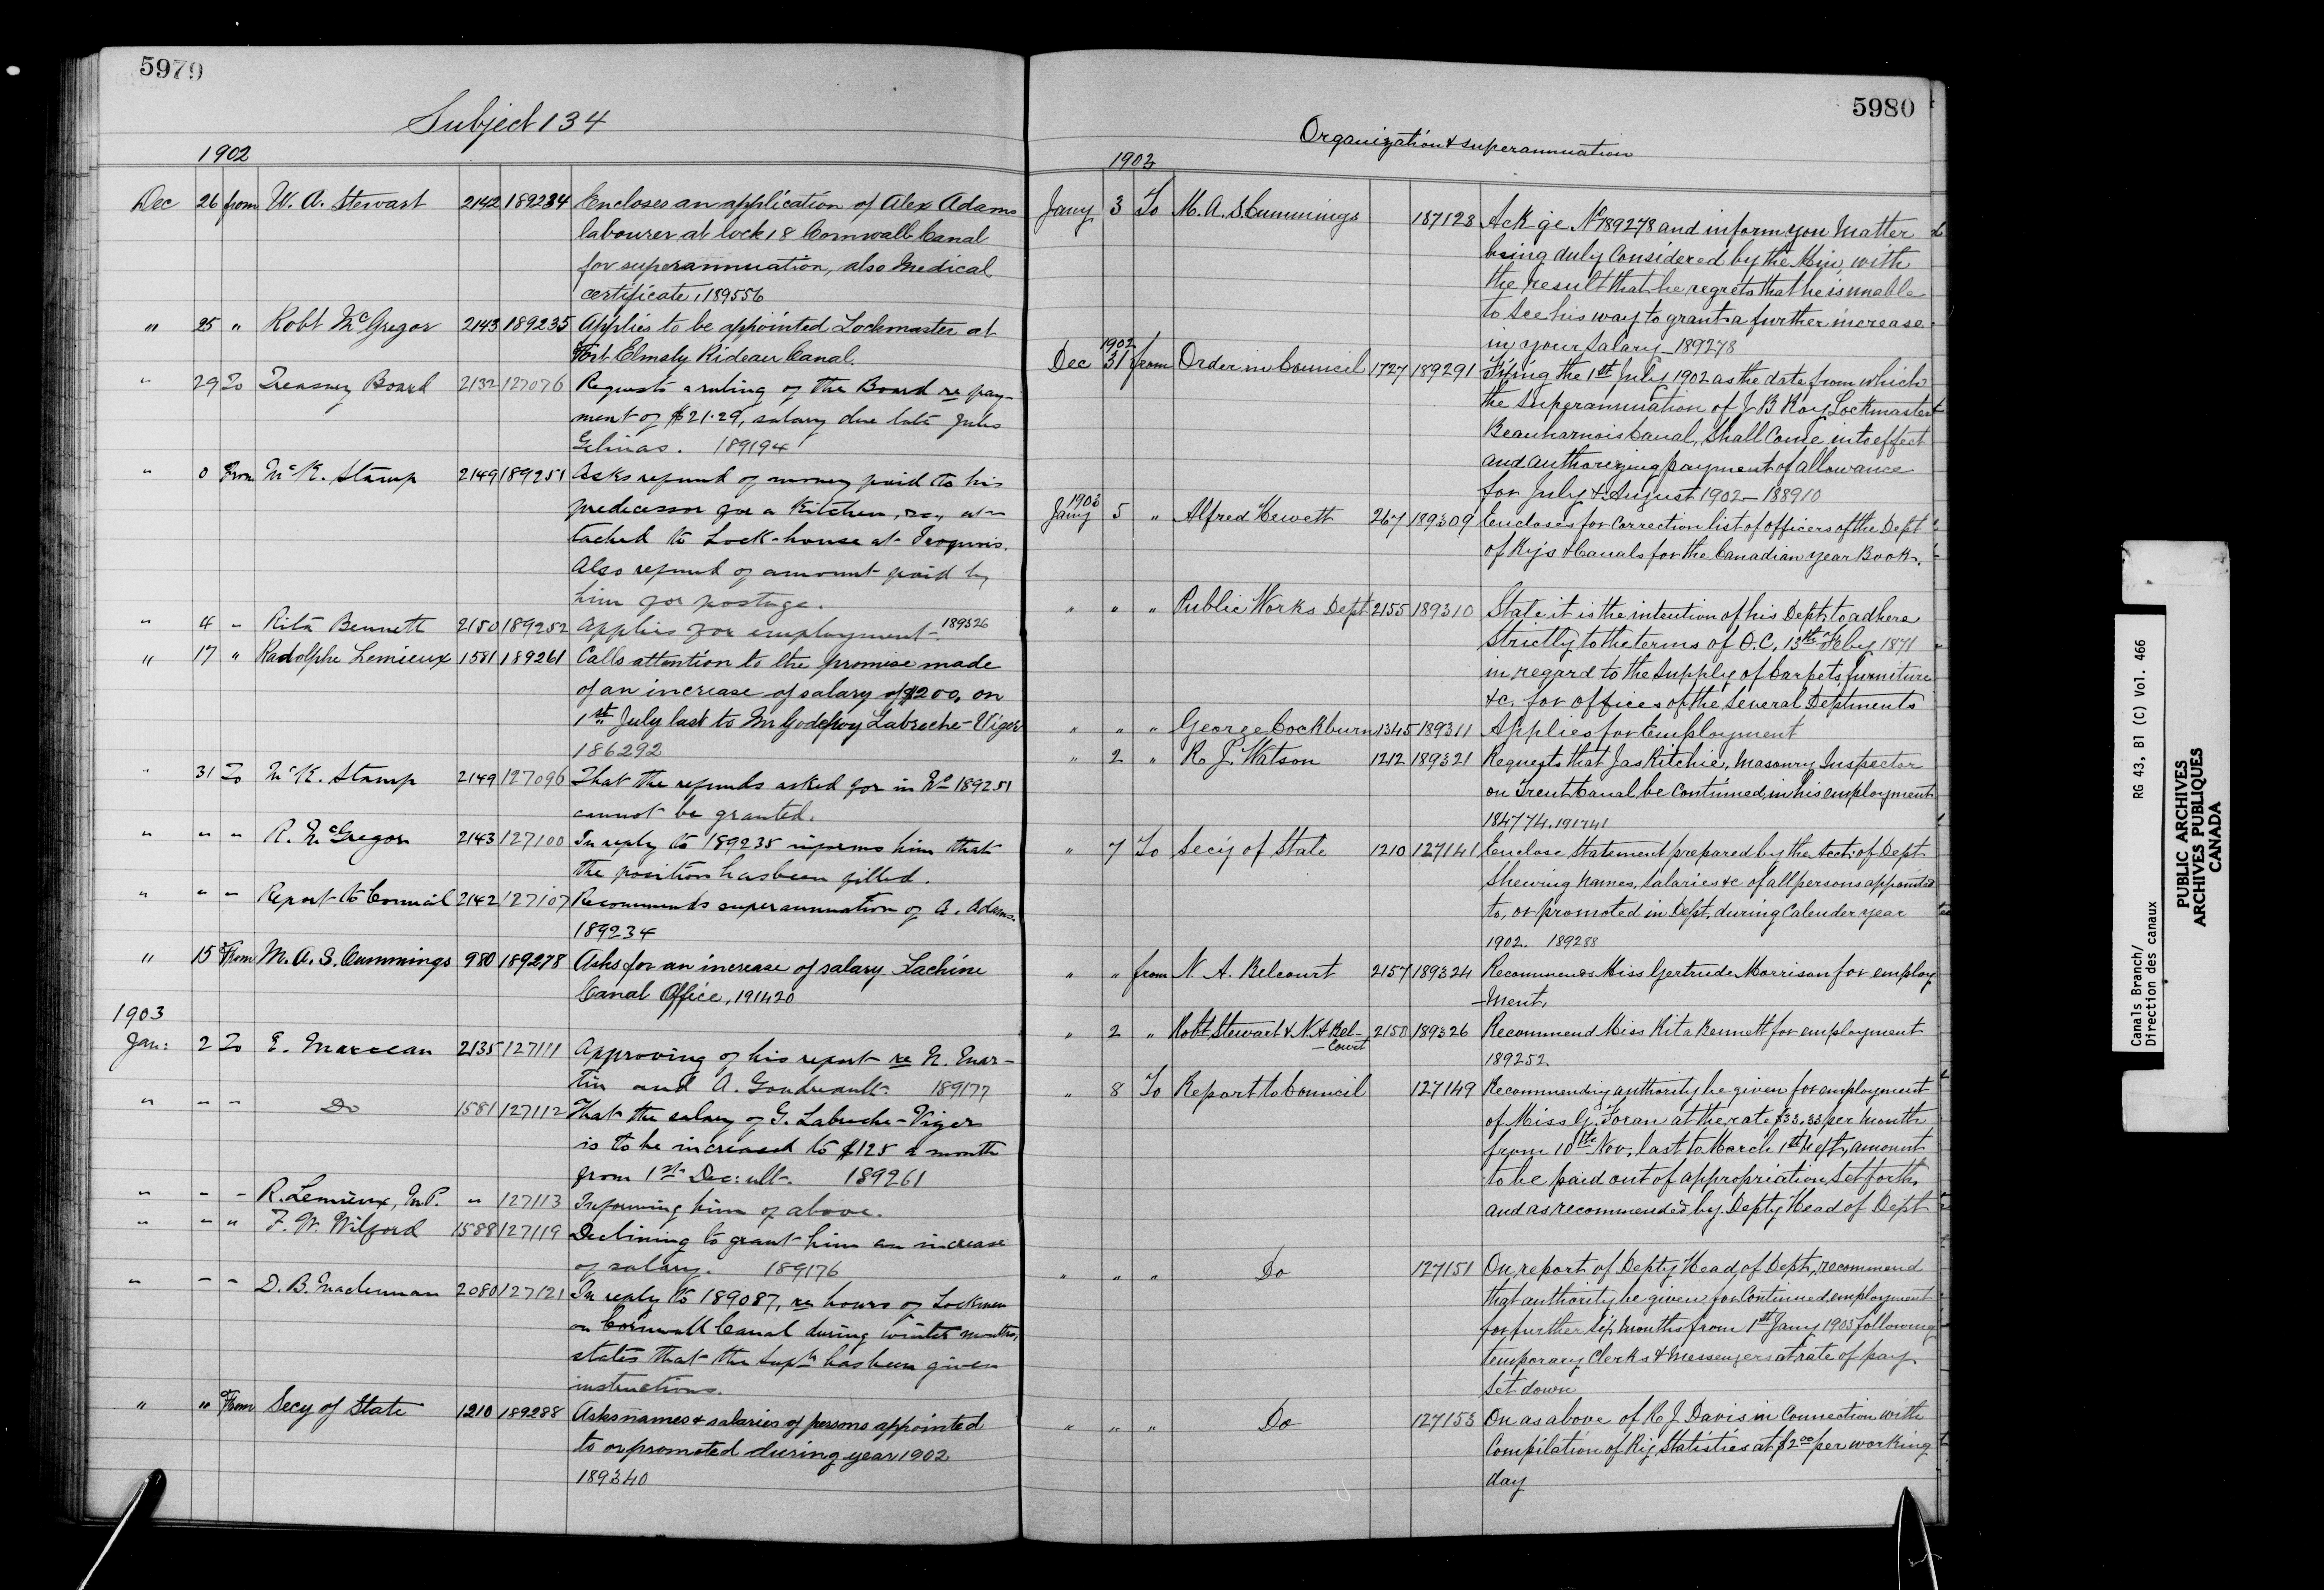 5979
Subject 134
1902
Dec 26 from W. A. Stewart 2142 189234 Encloses an application of Alex Adams
labourer at lock 18 Cornwall Canal
for superannuation, also Medical
certificate, 189556
" 25 " Robt McGregor 2143 189235 Applies to be appointed Lockmaster at
Port Elmsly Rideau Canal.
" 29 To Treasury Board 2132 127076 Requests a ruling of the Board re pay-
ment of $21.29, salary due late Jules
Gelinas. 189194
" 0 From McK. Stamp 2149 189251 Asks refund of money paid to his
predecessor for a Kitchen, &c., at-
tached to Lock-house at Iroquois.
Also refund of amount paid by
him for postage.
" 4 " Rita Bennett 2150 189252 Applies for employment. 189326
" 17 " Radolphe Lemieux 1581 189261 Calls attention to the promise made
of an increase of salary of $200, on
1st July last to Mr Godefroy Labreche-Viger
186292
" 31 To McK. Stamp 2149 127096 That the refunds asked for in No 189251
cannot be granted.
" " " R. McGregor 2143 127100 In reply to 189235 informs him that
the position has been filled.
" " " Report to Council 2142 127107 Recommends superannuation of A. Adams.
189234
" 15 From M. A. S. Cummings 980 189278 Asks for an increase of salary Lachine
Canal Office, 191420
1903
Jan: 2 To E. Marceau 2135 127111 Approving of his report re N. Mar-
tin and A. Goudreault. 189177
" " " Do 1581 127112 That the salary of G. Labreche-Viger
is to be increased to $125 a month
from 1st Dec: ult. 189261
" " " R. Lemieux, M.P. " 127113 Informing him of above.
" " " F. W. Wilford 1588 127119 Declining to grant him an increase
of salary. 189176
" " " D. B. Maclennan 2080 127121 In reply to 189087, re hours of Lockmen
on Cornwall Canal during winter months,
states that the Supt. has been given
instructions.
" " From Secy of State 1210 189288 Asks names & salaries of persons appointed
to or promoted during year 1902
189340
5980
Organization & superannuation
1903
Jany 3 To M. A. S. Cummings 127123 Ack ge No 189278 and inform you Matter
being duly Considered by the Min, with
the result that he regrets that he is unable
to see his way to grant a further increase
in your Salary - 189278
1902
Dec 31 from Order in Council 1727 189291 Fixing the 1st July 1902 as the date from which
the Superannuation of J B Roy Lockmaster
Beauharnois Canal, shall Come into effect
and authorizing payment of allowance
for July & August 1902 - 188910
1903
Jany 5 " Alfred Hewett 267 189309 Encloses for Correction list of officers of the Dept
of Rys & Canals for the Canadian year Book.
" " " Public Works Dept 2155 189310 State it is the intention of his Dept. to adhere
Strictly to the terms of O.C. 13th Feby 1871
in regard to the Supply of Carpets, furniture
&c. for offices of the Several Deptments
" " " George Cockburn 1345 189311 Applies for Employment
" 2 " R J. Watson 1212 189321 Requests that Jas Ritchie, Masonry Inspector
on Trent Canal, be Continued, in his employment
184774, 191741
" 7 To Secy of State 1210 127141 Enclose Statement prepared by the Acct. of Dept
Shewing Names, Salaries &c of all persons appointed
to, or promoted in Dept, during Calender year
1902. 189288
" " from N. A. Belcourt 2157 189324 Recommends Miss Gertrude Morrison for employ
-ment.
" 2 " Robt Stewart & N. A Bel- 2150 189326 Recommend Miss Rita Bennett for employment
-Court 189252
" 8 To Report to Council 127149 Recommending authority be given for employment
of Miss G. Foran at the rate $33.33 per Month
from 10th Nov, last to March 1st next, amount
to be paid out of appropriation Set forth,
and as recommended by Depty Head of Dept
" " " Do 127151 On report of Depty Head of Dept, recommend
that authority be given for Continued employment
for further Six months from 1st Jany 1903 following
temporary Clerks & Messengers at rate of pay
Set down
" " " Do 127153 On as above of R J Davis in Connection with
Compilation of Ry Statistics at $2.00 per working
day
Canals Branch/ RG 43, B1 (C) Vol. 466
Direction des canaux
PUBLIC ARCHIVES
ARCHIVES PUBLIQUES
CANADA